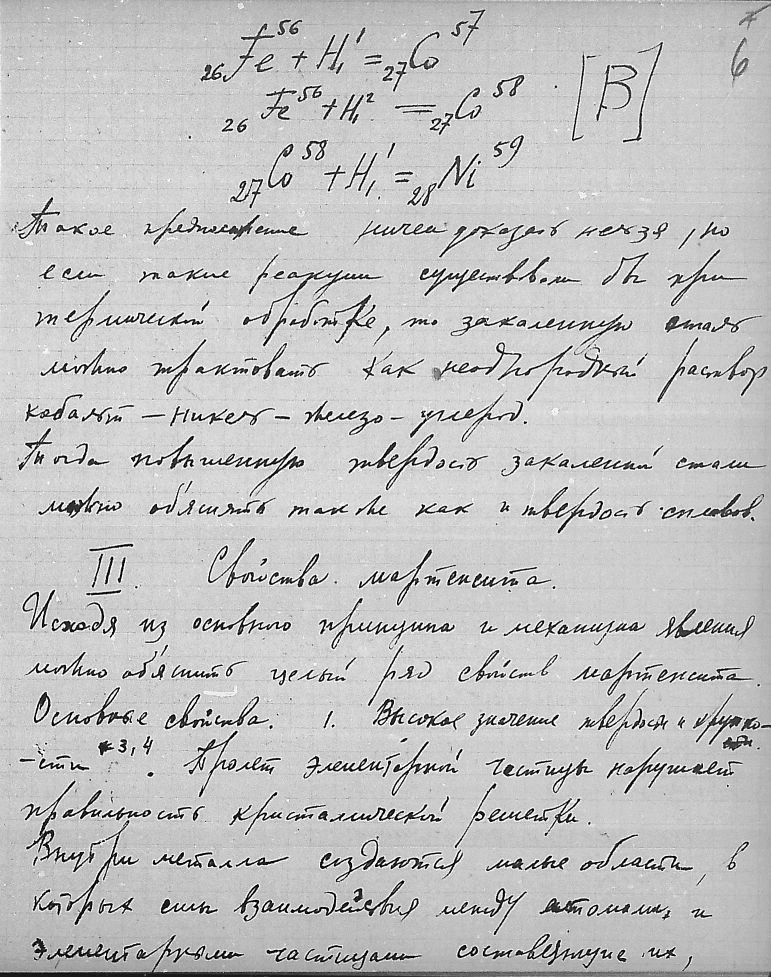 6
₂₆Fe⁵⁶ + H₁¹ = ₂₇Co⁵⁷
₂₆Fe⁵⁶ + H₁² = ₂₇Co⁵⁸ [B]
₂₇Co⁵⁸ + H₁¹ = ₂₈Ni⁵⁹
Такое предположение ничем доказать нельзя, но
если такие реакции существовали бы при
термической обработке, то закаленную сталь
можно трактовать как неоднородный раствор
кобальт – никель – железо – углерод.
Тогда повышенную твердость закаленной стали
можно об'яснять так же как и твердость сплавов.
III. Свойства мартенсита.
Исходя из основного принципа и механизма явления
можно об'яснить целый ряд свойств мартенсита.
Основные свойства. 1. Высокое значение твердости и хрупко-
-сти *3,4. Пролет элементарной частицы нарушает
правильность кристалической решетки.
Внутри металла создаются малые области, в
которых силы взаимодействия между атомами и
элементарными частицами составляющие их,